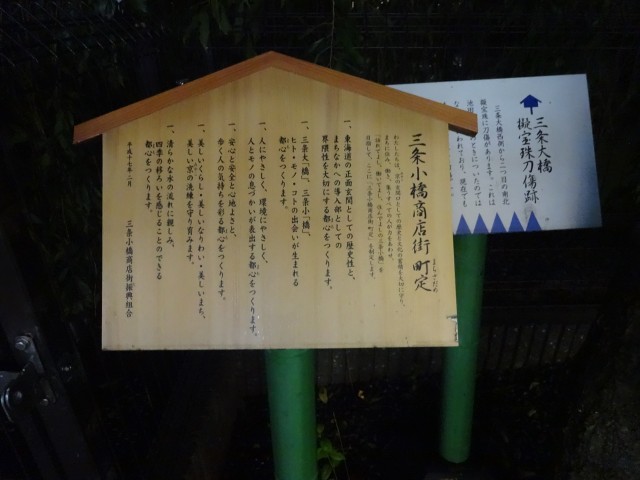 三条小橋商店街 町定
まちさだめ
一、東海道の正面玄関としての歴史性と、
まちなかへの導入部としての
界隈性を大切にする都心をつくります。
一、三条大「橋」、三条小「橋」、
ヒト・モノ・コトの出会いが生まれる
都心をつくります。
一、人にやさしく、環境にやさしく、
人とモノの息づかいが表出する都心をつくります。
一、安心と安全と心地よさと、
歩く人の気持ちを彩る都心をつくります。
一、美しいくらし・美しいなりわい・美しいまち、
美しい京の洗練を守り育みます。
一、清らかな水の流れに親しみ、
四季の移ろいを感じることのできる
都心をつくります。
平成十年二月
三条小橋商店街振興組合
三条大橋
擬宝珠刀傷跡
三条大橋西側から二つ目の南北
擬宝珠に刀傷があります。これは